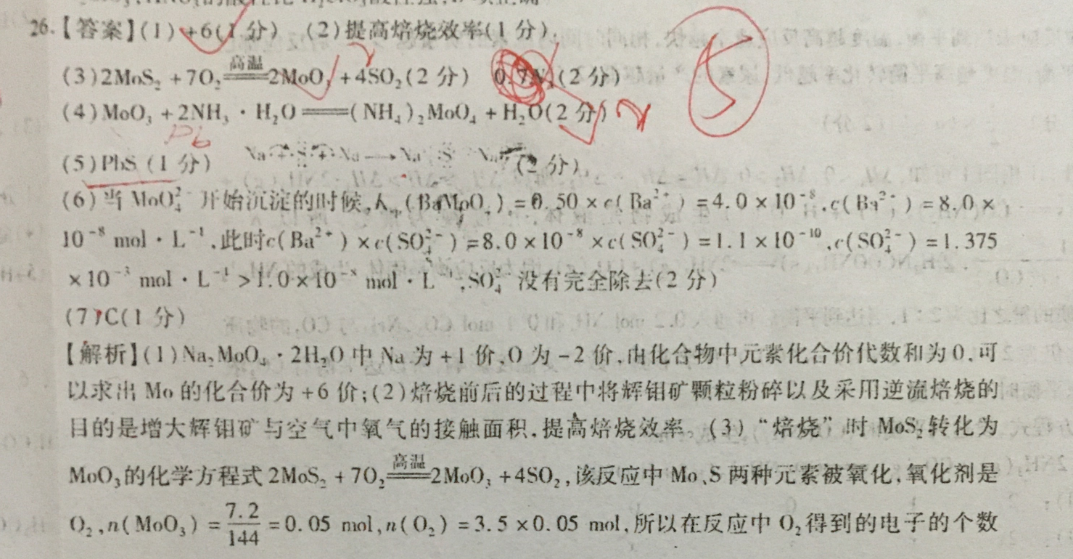 26.【答案】(1)+6(1分) (2)提高焙烧效率(1分)
(3)2MoS₂+7O₂ 高温 2MoO₃+4SO₂(2分) 0.7Nₐ(2分)
(4)MoO₃+2NH₃·H₂O══(NH₄)₂MoO₄+H₂O(2分)
Pb
5
(5)PbS(1分) (2分)
(6)当MoO₄²⁻开始沉淀的时候,Kₛₚ(BaMoO₄)=0.50×c(Ba²⁺)=4.0×10⁻⁸,c(Ba²⁺)=8.0×
10⁻⁸ mol·L⁻¹,此时c(Ba²⁺)×c(SO₄²⁻)=8.0×10⁻⁸×c(SO₄²⁻)=1.1×10⁻¹⁰,c(SO₄²⁻)=1.375
×10⁻³ mol·L⁻¹>1.0×10⁻⁵ mol·L⁻¹,SO₄²⁻没有完全除去(2分)
(7)C(1分)
【解析】(1)Na₂MoO₄·2H₂O中Na为+1价,O为-2价,由化合物中元素化合价代数和为0,可
以求出Mo的化合价为+6价;(2)焙烧前后的过程中将辉钼矿颗粒粉碎以及采用逆流焙烧的
目的是增大辉钼矿与空气中氧气的接触面积,提高焙烧效率。(3)“焙烧”时MoS₂转化为
MoO₃的化学方程式2MoS₂+7O₂ 高温 2MoO₃+4SO₂,该反应中Mo、S两种元素被氧化,氧化剂是
O₂,n(MoO₃)=7.2/144=0.05 mol,n(O₂)=3.5×0.05 mol,所以在反应中O₂得到的电子的个数